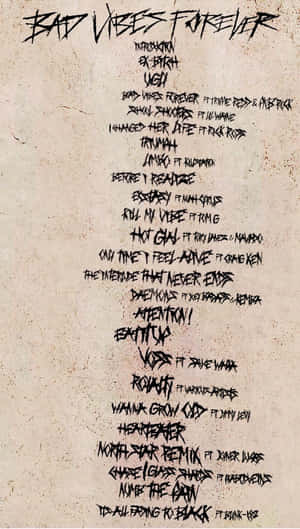 BAD VIBES FOREVER
INTRODUCTION
EX BITCH
UGLY
BAD VIBES FOREVER FT TRIPPIE REDD & PNB ROCK
SCHOOL SHOOTERS FT LIL WAYNE
I CHANGED HER LIFE FT RICK ROSS
TRIUMPH
LIMBO FT KILLSTATION
BEFORE I REALIZE
ECSTASY FT NOAH CYRUS
KILL MY VIBE FT TOM G
HOT GYAL FT TORY LANEZ & MAVADO
ONLY TIME I FEEL ALIVE FT CRAIG XEN
THE INTERLUDE THAT NEVER ENDS
DAEMONS FT JOEY BADASS & KEMBA
ATTENTION!
EAT IT UP
VOSS FT SAUCE WALKA
ROYALTY FT VARIOUS ARTISTS
WANNA GROW OLD FT JIMMY LEVY
HEARTEATER
NORTH STAR REMIX FT JOYNER LUCAS
CHASE / GLASS SHARDS FT
NUMB THE PAIN
ITS ALL FADING TO BLACK FT BLINK-182